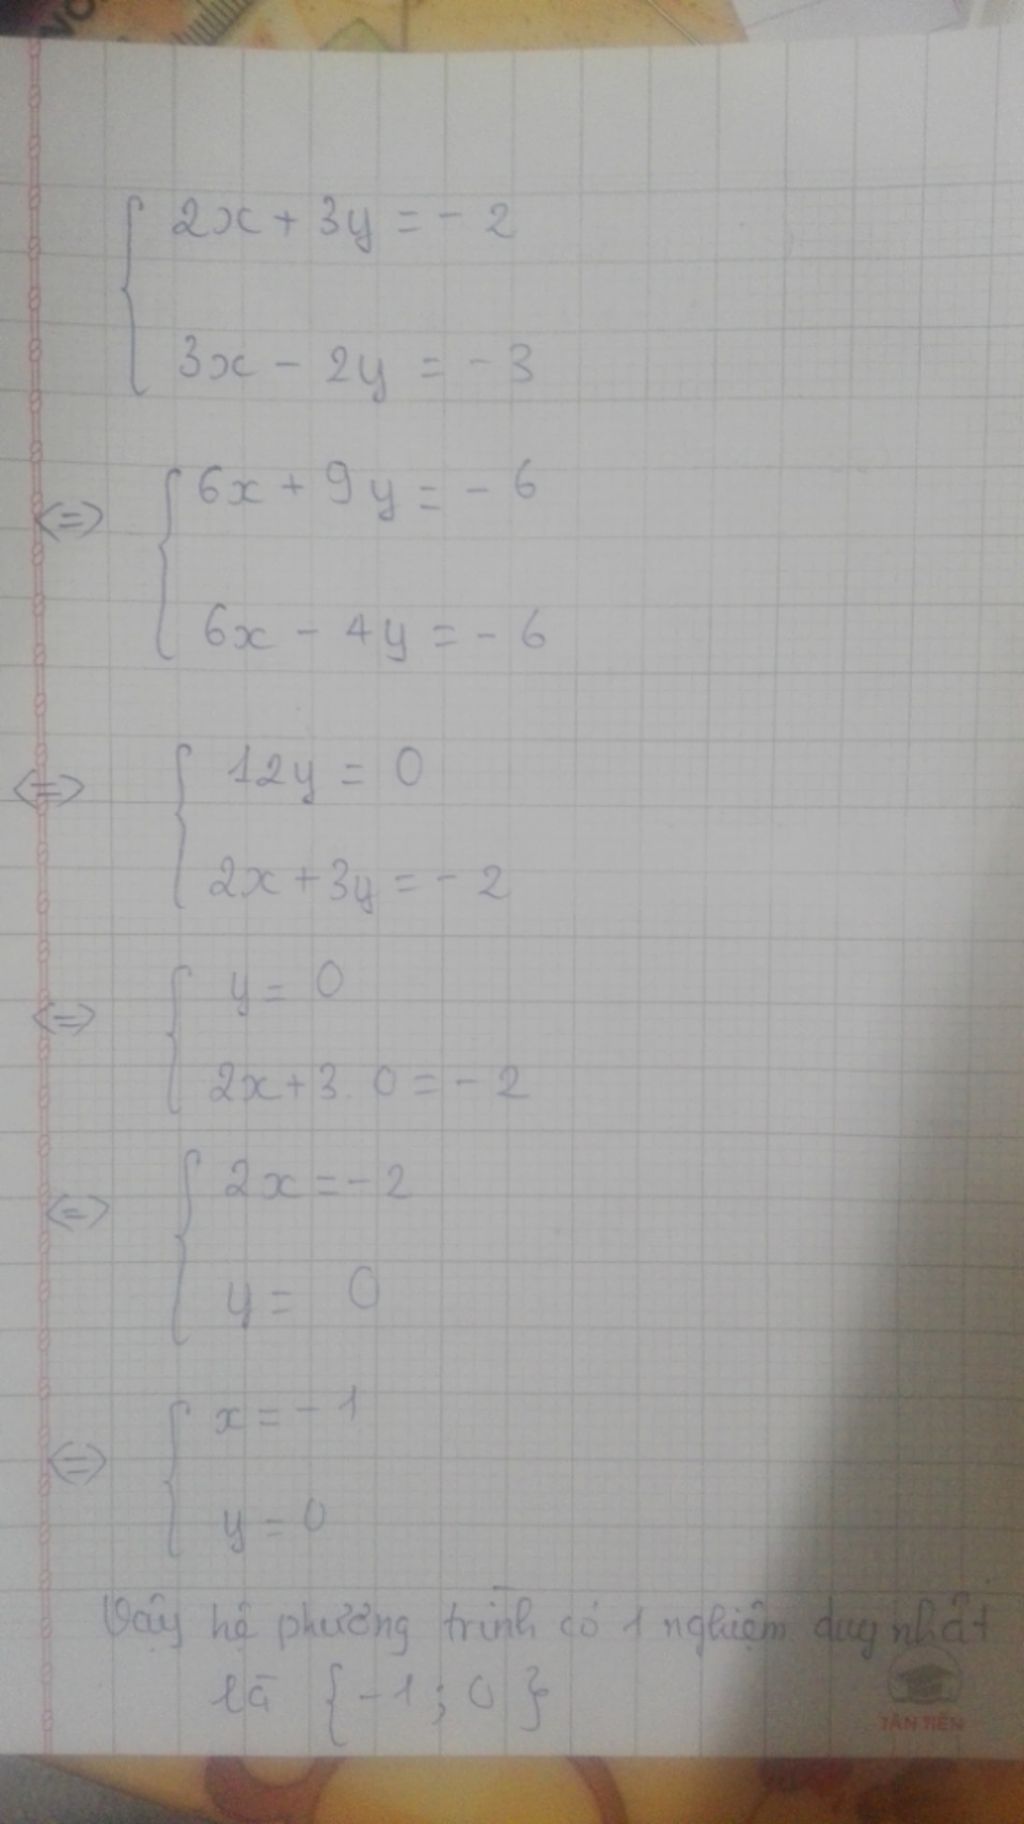 2x + 3y = - 2
3x - 2y = - 3
<=> 6x + 9y = - 6
6x - 4y = - 6
<=> 12y = 0
2x + 3y = - 2
<=> y = 0
2x + 3. 0 = - 2
<=> 2x = - 2
y = 0
<=> x = - 1
y = 0
Vậy hệ phương trình có 1 nghiệm duy nhất
là {-1; 0}
TÂN TIẾN